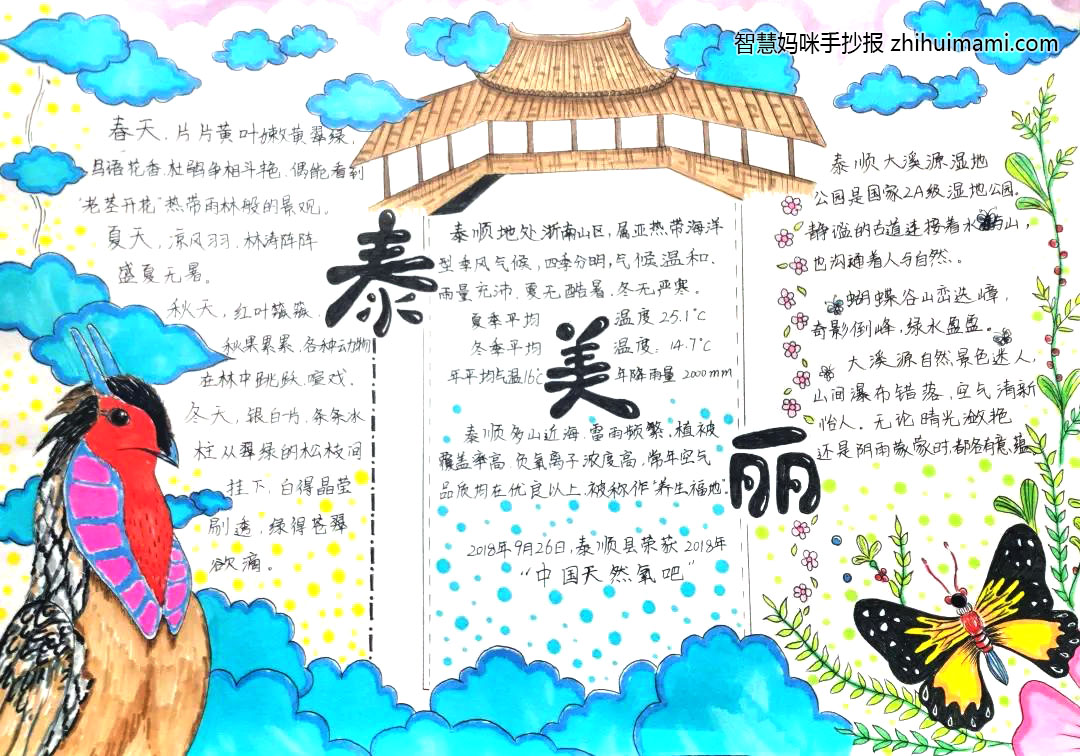 智慧妈咪手抄报 zhihuimami.com
春天，片片黄叶嫩黄翠绿，
鸟语花香、杜鹃争相斗艳、偶能看到
"老茎开花"热带雨林般的景观。
夏天，凉风习习、林涛阵阵
盛夏无暑。
秋天，红叶簇簇、
秋果累累、各种动物
在林中跳跃、喧戏、
冬天，银白片、条条冰
柱从翠绿的松枝间
挂下，白得晶莹
剔透，绿得苍翠
欲滴。
泰
美
丽
泰顺地处浙南山区，属亚热带海洋
型季风气候，四季分明，气候温和、
雨量充沛、夏无酷暑、冬无严寒。
夏季平均温度25.1℃
冬季平均温度：14.7℃
年平均气温16℃ 年降雨量 2000mm
泰顺多山近海、雷雨频繁，植被
覆盖率高、负氧离子浓度高，常年空气
品质均在优良以上、被称作"养生福地"。
2018年9月26日，泰顺县荣获 2018年
"中国天然氧吧"
泰顺大溪源湿地
公园是国家2A级湿地公园。
静谧的古道连接着水与山，
也沟通着人与自然。
蝴蝶谷山峦迭嶂，
奇影倒峰，绿水盈盈。
大溪源自然景色迷人，
山间瀑布错落，空气清新
怡人。无论晴光潋艳
还是阴雨蒙蒙时，都各有意蕴